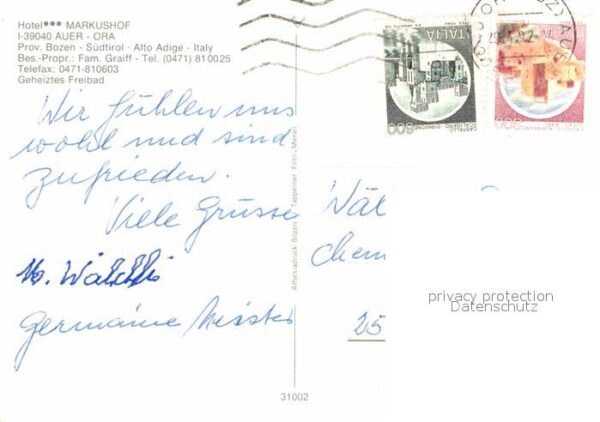 Hotel*** MARKUSHOF
I-39040 AUER - ORA
Prov. Bozen - Südtirol - Alto Adige - Italy
Bes.-Propr.: Fam. Graiff - Tel. (0471) 810025
Telefax: 0471-810603
Geheiztes Freibad
Wir fühlen uns
wohl und sind
zufrieden.
Viele Grüsse
Germaine Meister
Athesiadruck Bozen Tappeiner Foto Meran
31002
ITALIA
600
Wäl
Chem
25
privacy protection
Datenschutz